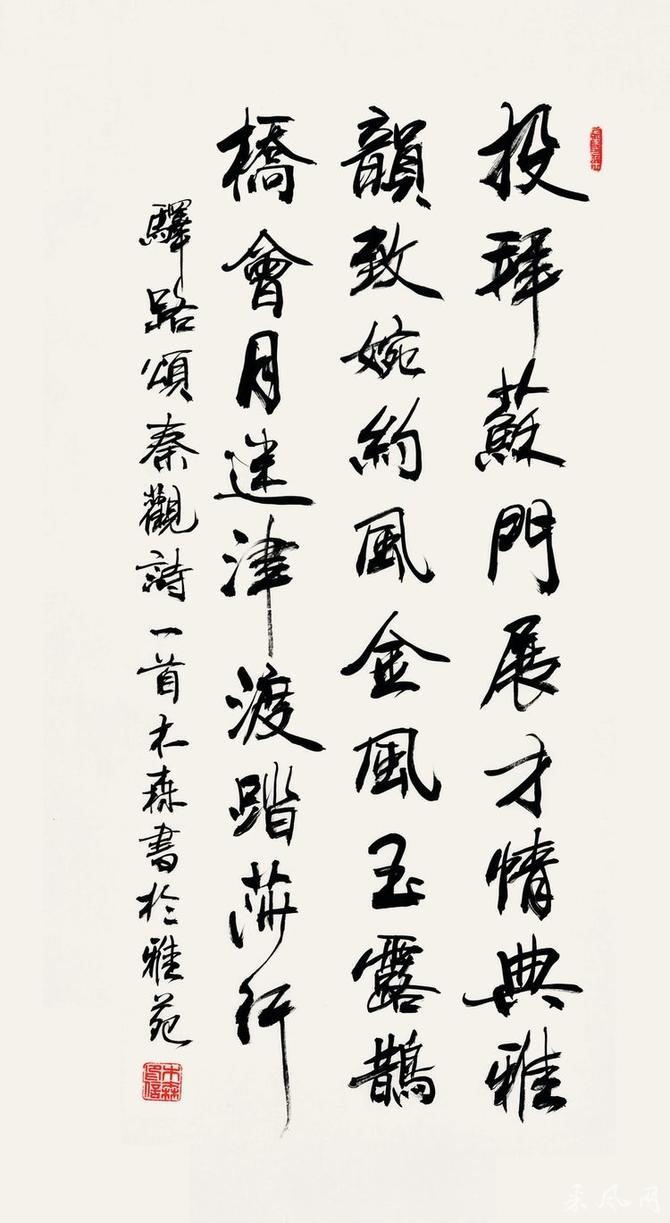 投拜蘇門展才情典雅
韻致婉約風金風玉露鵲
橋會月迷津渡踏莎行
驛路頌秦觀詩一首木森書於雅苑
木森書信
采风网